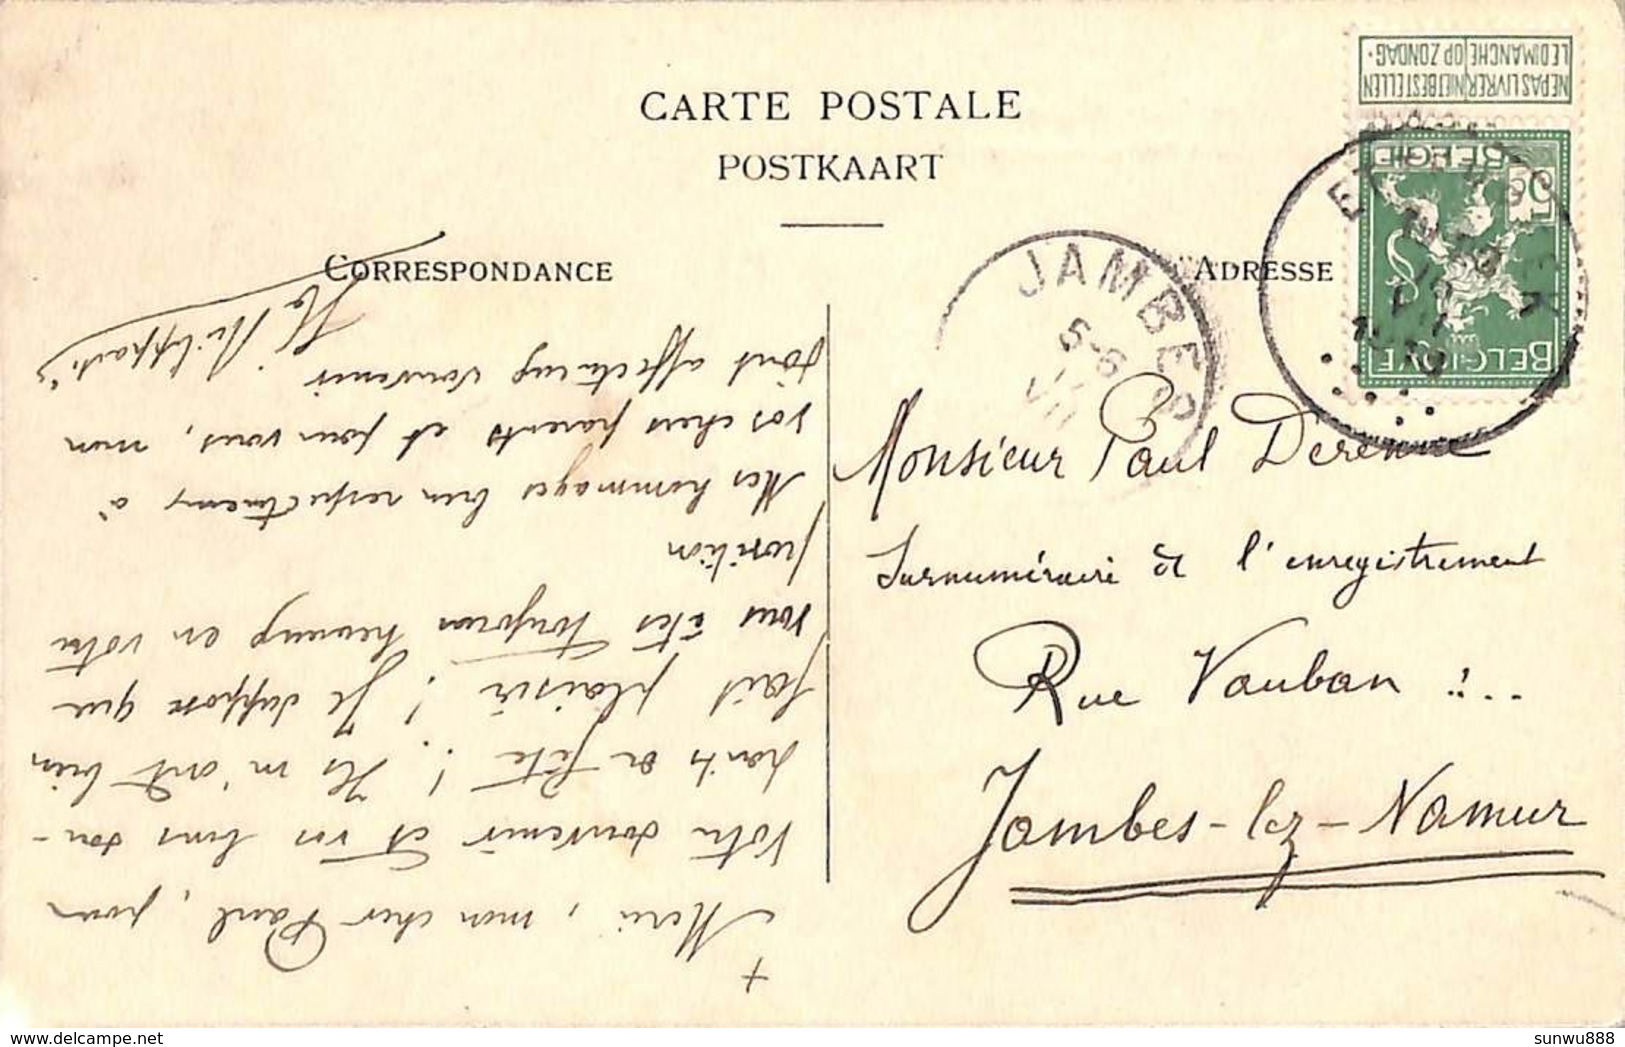 CARTE POSTALE
POSTKAART
CORRESPONDANCE
ADRESSE
+
Merci, mon cher Paul, pour
votre souvenir et vos bons sou-
haits de fête! Ils m'ont bien
fait plaisir! Je suppose que
vous êtes toujours heureux en votre
position
Mes hommages bien respectueux à
vos chers parents et pour vous, mon
tout affectueux souvenir
NE PAS LIVRER NIET BESTELLEN
LE DIMANCHE OP ZONDAG.
BELGIË
5
BELGIQUE
JAMBES
5-6
VII
Monsieur Paul Derenne
Surnuméraire de l'enregistrement
Rue Vauban :..
Jambes-lez-Namur
sunwu888